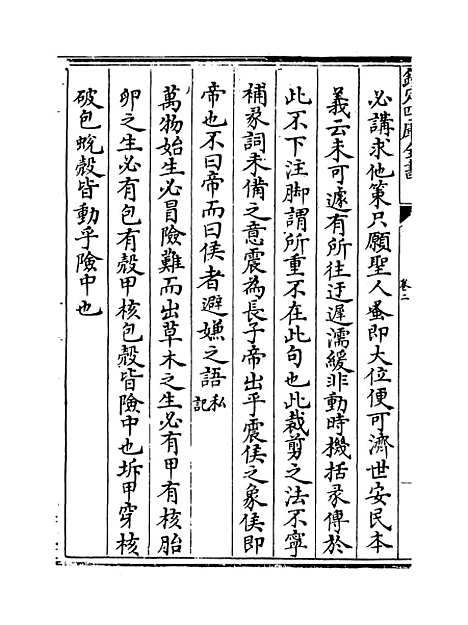 欽定四庫全書
卷二
必講求他策只願聖人蚤即大位便可濟世安民本
義云未可遽有所往迂遲濡緩非動時機括彖傳於
此不下注脚謂所重不在此句也此裁剪之法不寧
補彖詞未備之意震為長子帝出乎震侯之象侯即
帝也不曰帝而曰侯者避嫌之語私記
萬物始生必冒險難而出草木之生必有甲有核胎
卵之生必有包有殼甲核包殼皆險中也坼甲穿核
破包蛻殼皆動乎險中也